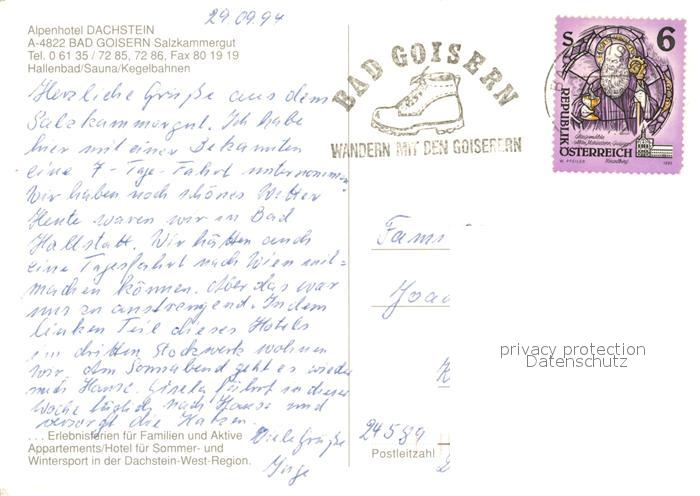 29.09.94
Alpenhotel DACHSTEIN
A-4822 BAD GOISERN Salzkammergut
Tel. 0 61 35 / 72 85, 72 86, Fax 80 19 19
Hallenbad/Sauna/Kegelbahnen
Herzliche Grüße aus dem
Salzkammergut. Ich habe
hier mit einer Bekannten
eine 7-Tage-Fahrt unternommen
Wir haben noch schönes Wetter
Heute waren wir in Bad
Hallstatt. Wir hätten auch
eine Tagesfahrt nach Wien mit=
machen können. Aber das war
uns zu anstrengend. In dem
linken Teil dieses Hotels
im dritten Stockwerk wohnen
wir. Am Sonnabend geht es wieder
nach Hause. Gisela fährt in dieser
Woche täglich nach Hause und
versorgt die Katzen.
Viele Grüße
Inge
... Erlebnisferien für Familien und Aktive
Appartements/Hotel für Sommer- und
Wintersport in der Dachstein-West-Region.
BAD GOISERN
WANDERN MIT DEN GOISERERN
S 6
REPUBLIK
ÖSTERREICH
Fami
Joac
K
24589
Postleitzahl
privacy protection
Datenschutz